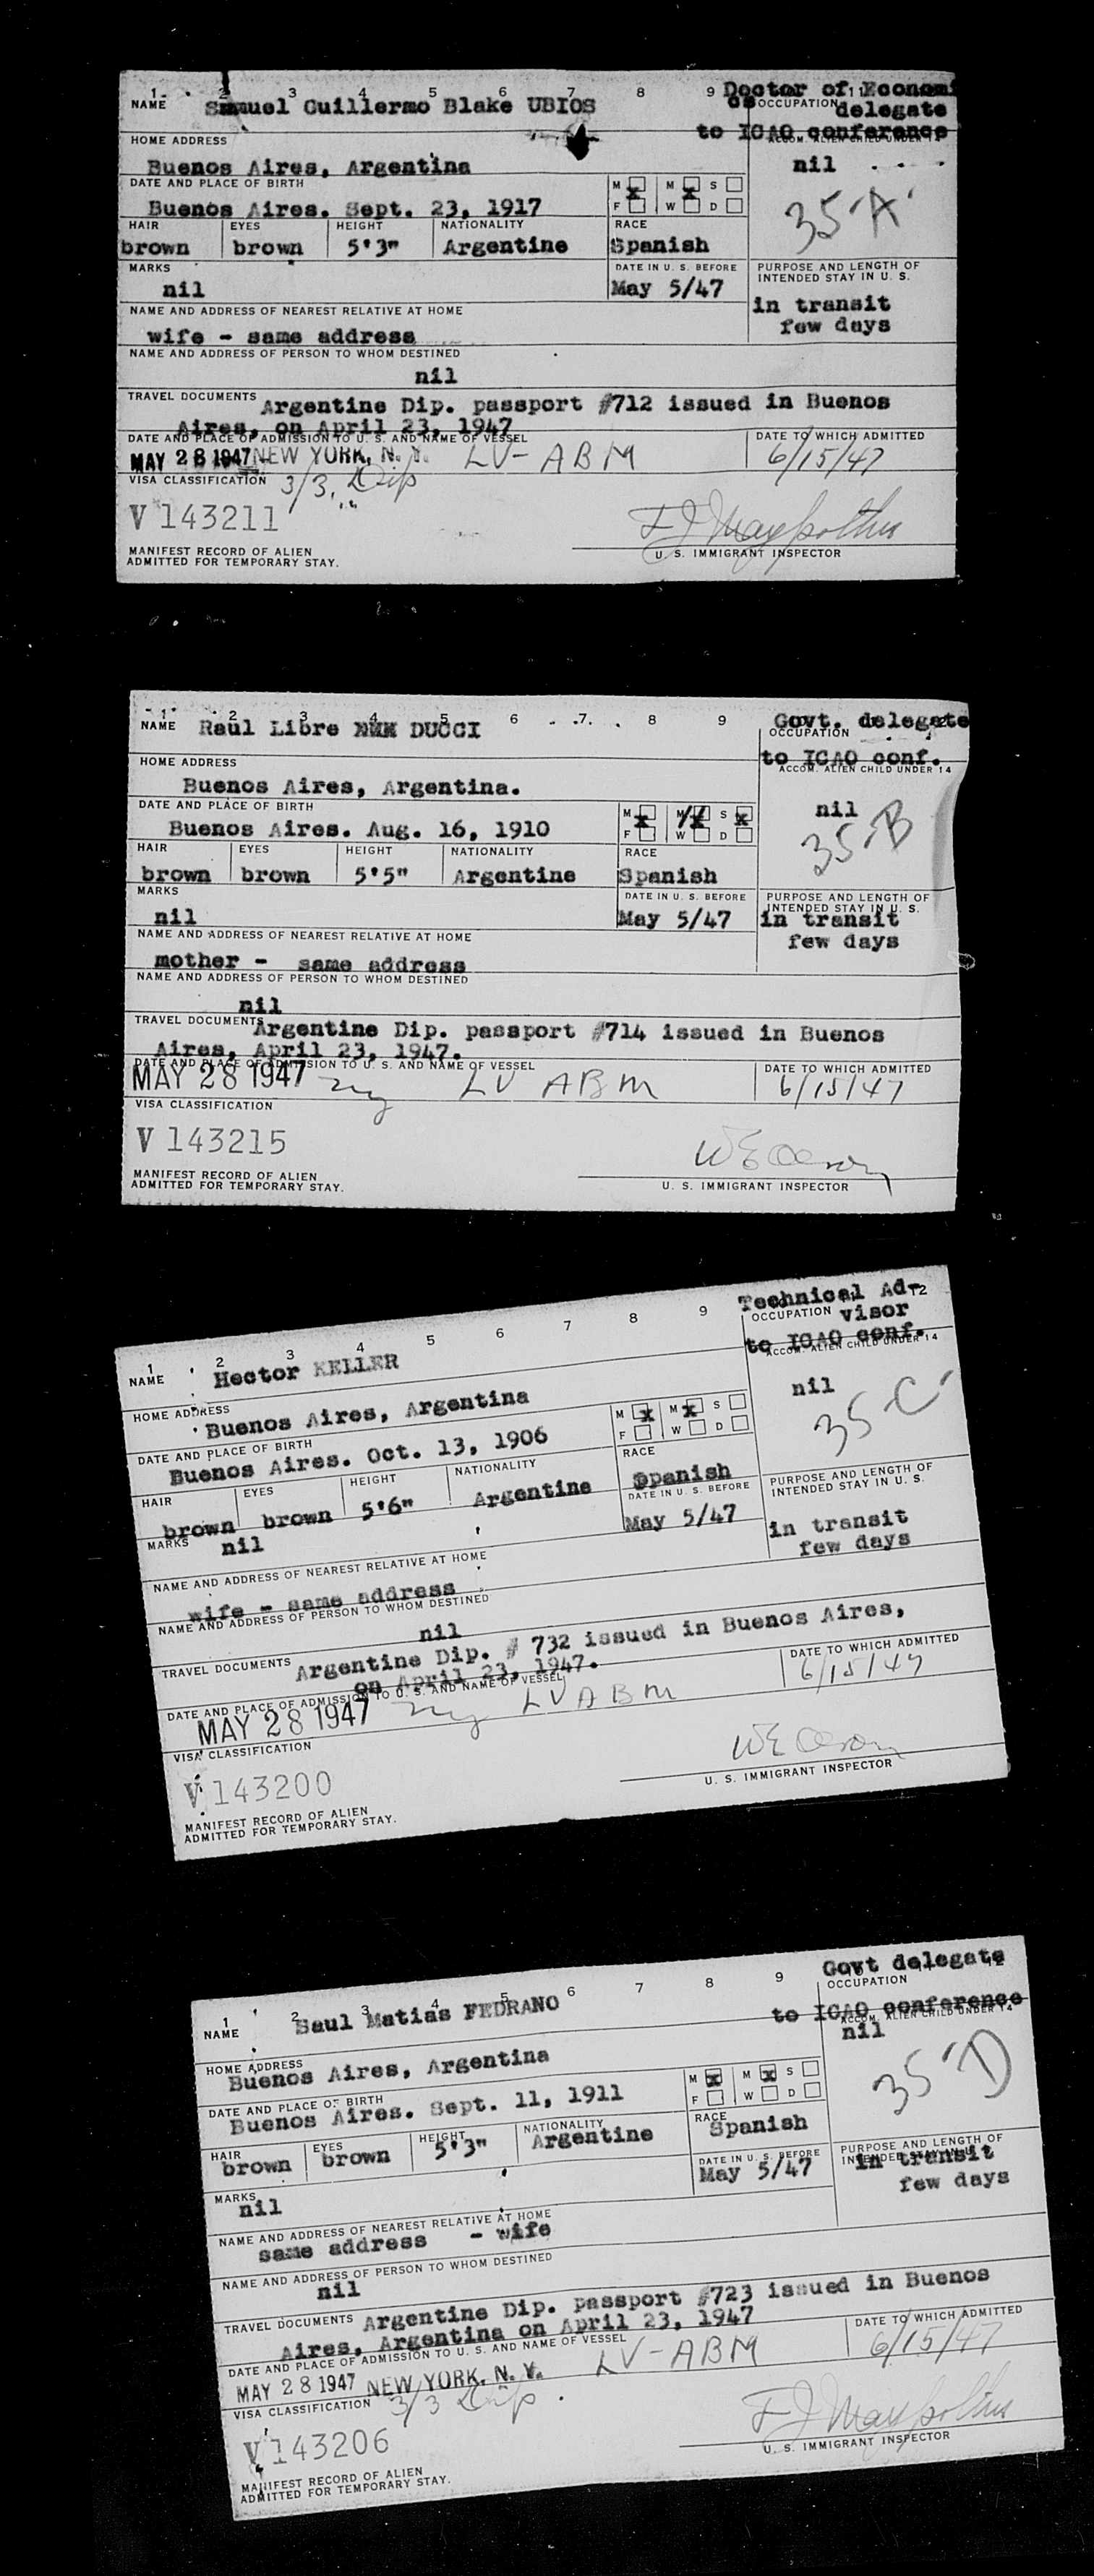 1 2 3 4 5 6 7 8 9 Doctor of Economi
NAME Samuel Guillermo Blake UBIOS cs OCCUPATION delegate
to ICAO conference
HOME ADDRESS ACCOM. ALIEN CHILD UNDER 14
Buenos Aires, Argentina nil
DATE AND PLACE OF BIRTH M x M x S
Buenos Aires. Sept. 23, 1917 F W D 35 'A'
HAIR EYES HEIGHT NATIONALITY RACE
brown brown 5'3" Argentine Spanish
MARKS DATE IN U. S. BEFORE PURPOSE AND LENGTH OF
INTENDED STAY IN U. S.
nil May 5/47 in transit
NAME AND ADDRESS OF NEAREST RELATIVE AT HOME few days
wife - same address
NAME AND ADDRESS OF PERSON TO WHOM DESTINED
nil
TRAVEL DOCUMENTS Argentine Dip. passport #712 issued in Buenos
Aires, on April 23, 1947
DATE AND PLACE OF ADMISSION TO U. S. AND NAME OF VESSEL DATE TO WHICH ADMITTED
MAY 28 1947 NEW YORK, N. Y. LV-ABM 6/15/47
VISA CLASSIFICATION 3/3, Dip
V 143211
MANIFEST RECORD OF ALIEN U. S. IMMIGRANT INSPECTOR
ADMITTED FOR TEMPORARY STAY.
1 2 3 4 5 6 7 8 9 Govt. delegate
NAME Raul Libre DUCCI OCCUPATION
to ICAO conf.
HOME ADDRESS ACCOM. ALIEN CHILD UNDER 14
Buenos Aires, Argentina. nil
DATE AND PLACE OF BIRTH M x M S x
Buenos Aires. Aug. 16, 1910 F W D 35-B
HAIR EYES HEIGHT NATIONALITY RACE
brown brown 5'5" Argentine Spanish
MARKS DATE IN U. S. BEFORE PURPOSE AND LENGTH OF
INTENDED STAY IN U. S.
nil May 5/47 in transit
NAME AND ADDRESS OF NEAREST RELATIVE AT HOME few days
mother - same address
NAME AND ADDRESS OF PERSON TO WHOM DESTINED
nil
TRAVEL DOCUMENTS Argentine Dip. passport #714 issued in Buenos
Aires, April 23, 1947.
DATE AND PLACE OF ADMISSION TO U. S. AND NAME OF VESSEL DATE TO WHICH ADMITTED
MAY 28 1947 ny LV ABM 6/15/47
VISA CLASSIFICATION
V 143215
MANIFEST RECORD OF ALIEN
ADMITTED FOR TEMPORARY STAY. U. S. IMMIGRANT INSPECTOR
1 2 3 4 5 6 7 8 9 12 Technical Ad-
OCCUPATION visor
NAME Hector KELLER to ICAO conf.
HOME ADDRESS ACCOM. ALIEN CHILD UNDER 14
Buenos Aires, Argentina nil
DATE AND PLACE OF BIRTH M x M x S
Buenos Aires. Oct. 13, 1906 F W D 35-C
HAIR EYES HEIGHT NATIONALITY RACE
brown brown 5'6" Argentine Spanish
MARKS nil DATE IN U. S. BEFORE PURPOSE AND LENGTH OF
INTENDED STAY IN U. S.
May 5/47 in transit
few days
NAME AND ADDRESS OF NEAREST RELATIVE AT HOME
wife - same address
NAME AND ADDRESS OF PERSON TO WHOM DESTINED
nil
TRAVEL DOCUMENTS Argentine Dip. # 732 issued in Buenos Aires,
on April 23, 1947.
DATE AND PLACE OF ADMISSION TO U. S. AND NAME OF VESSEL DATE TO WHICH ADMITTED
MAY 28 1947 ny LV ABM 6/15/47
VISA CLASSIFICATION
V 143200
MANIFEST RECORD OF ALIEN U. S. IMMIGRANT INSPECTOR
ADMITTED FOR TEMPORARY STAY.
1 2 3 4 5 6 7 8 9 Govt delegate
OCCUPATION
NAME Saul Matias FEDRANO to ICAO conference
HOME ADDRESS ACCOM. ALIEN CHILD UNDER 14
Buenos Aires, Argentina nil
DATE AND PLACE OF BIRTH M x M x S
Buenos Aires. Sept. 11, 1911 F W D 35 'D
HAIR EYES HEIGHT NATIONALITY RACE
brown brown 5'3" Argentine Spanish
MARKS DATE IN U. S. BEFORE PURPOSE AND LENGTH OF
nil May 5/47 in transit
few days
NAME AND ADDRESS OF NEAREST RELATIVE AT HOME
same address - wife
NAME AND ADDRESS OF PERSON TO WHOM DESTINED
nil
TRAVEL DOCUMENTS Argentine Dip. passport #723 issued in Buenos
Aires, Argentina on April 23, 1947
DATE AND PLACE OF ADMISSION TO U. S. AND NAME OF VESSEL DATE TO WHICH ADMITTED
MAY 28 1947 NEW YORK, N. Y. LV-ABM 6/15/47
VISA CLASSIFICATION 3/3 Dip.
V 143206
MANIFEST RECORD OF ALIEN U. S. IMMIGRANT INSPECTOR
ADMITTED FOR TEMPORARY STAY.